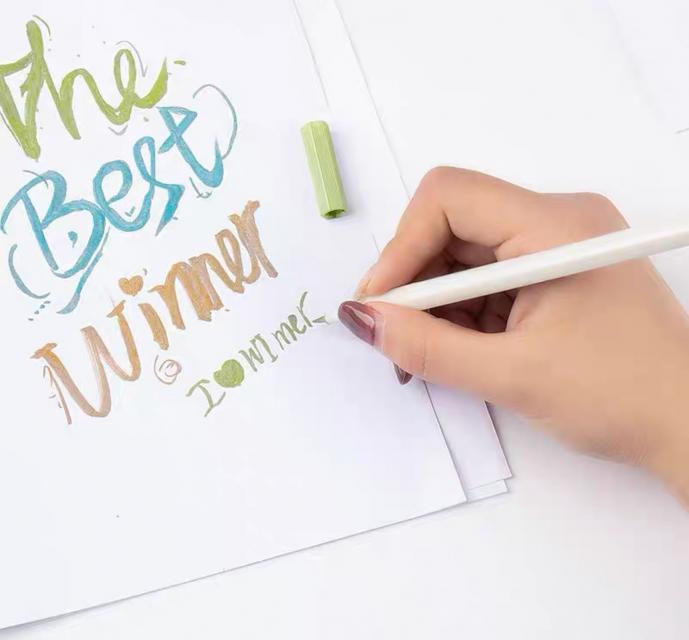 The
Best
Winner
I ♥ Winner